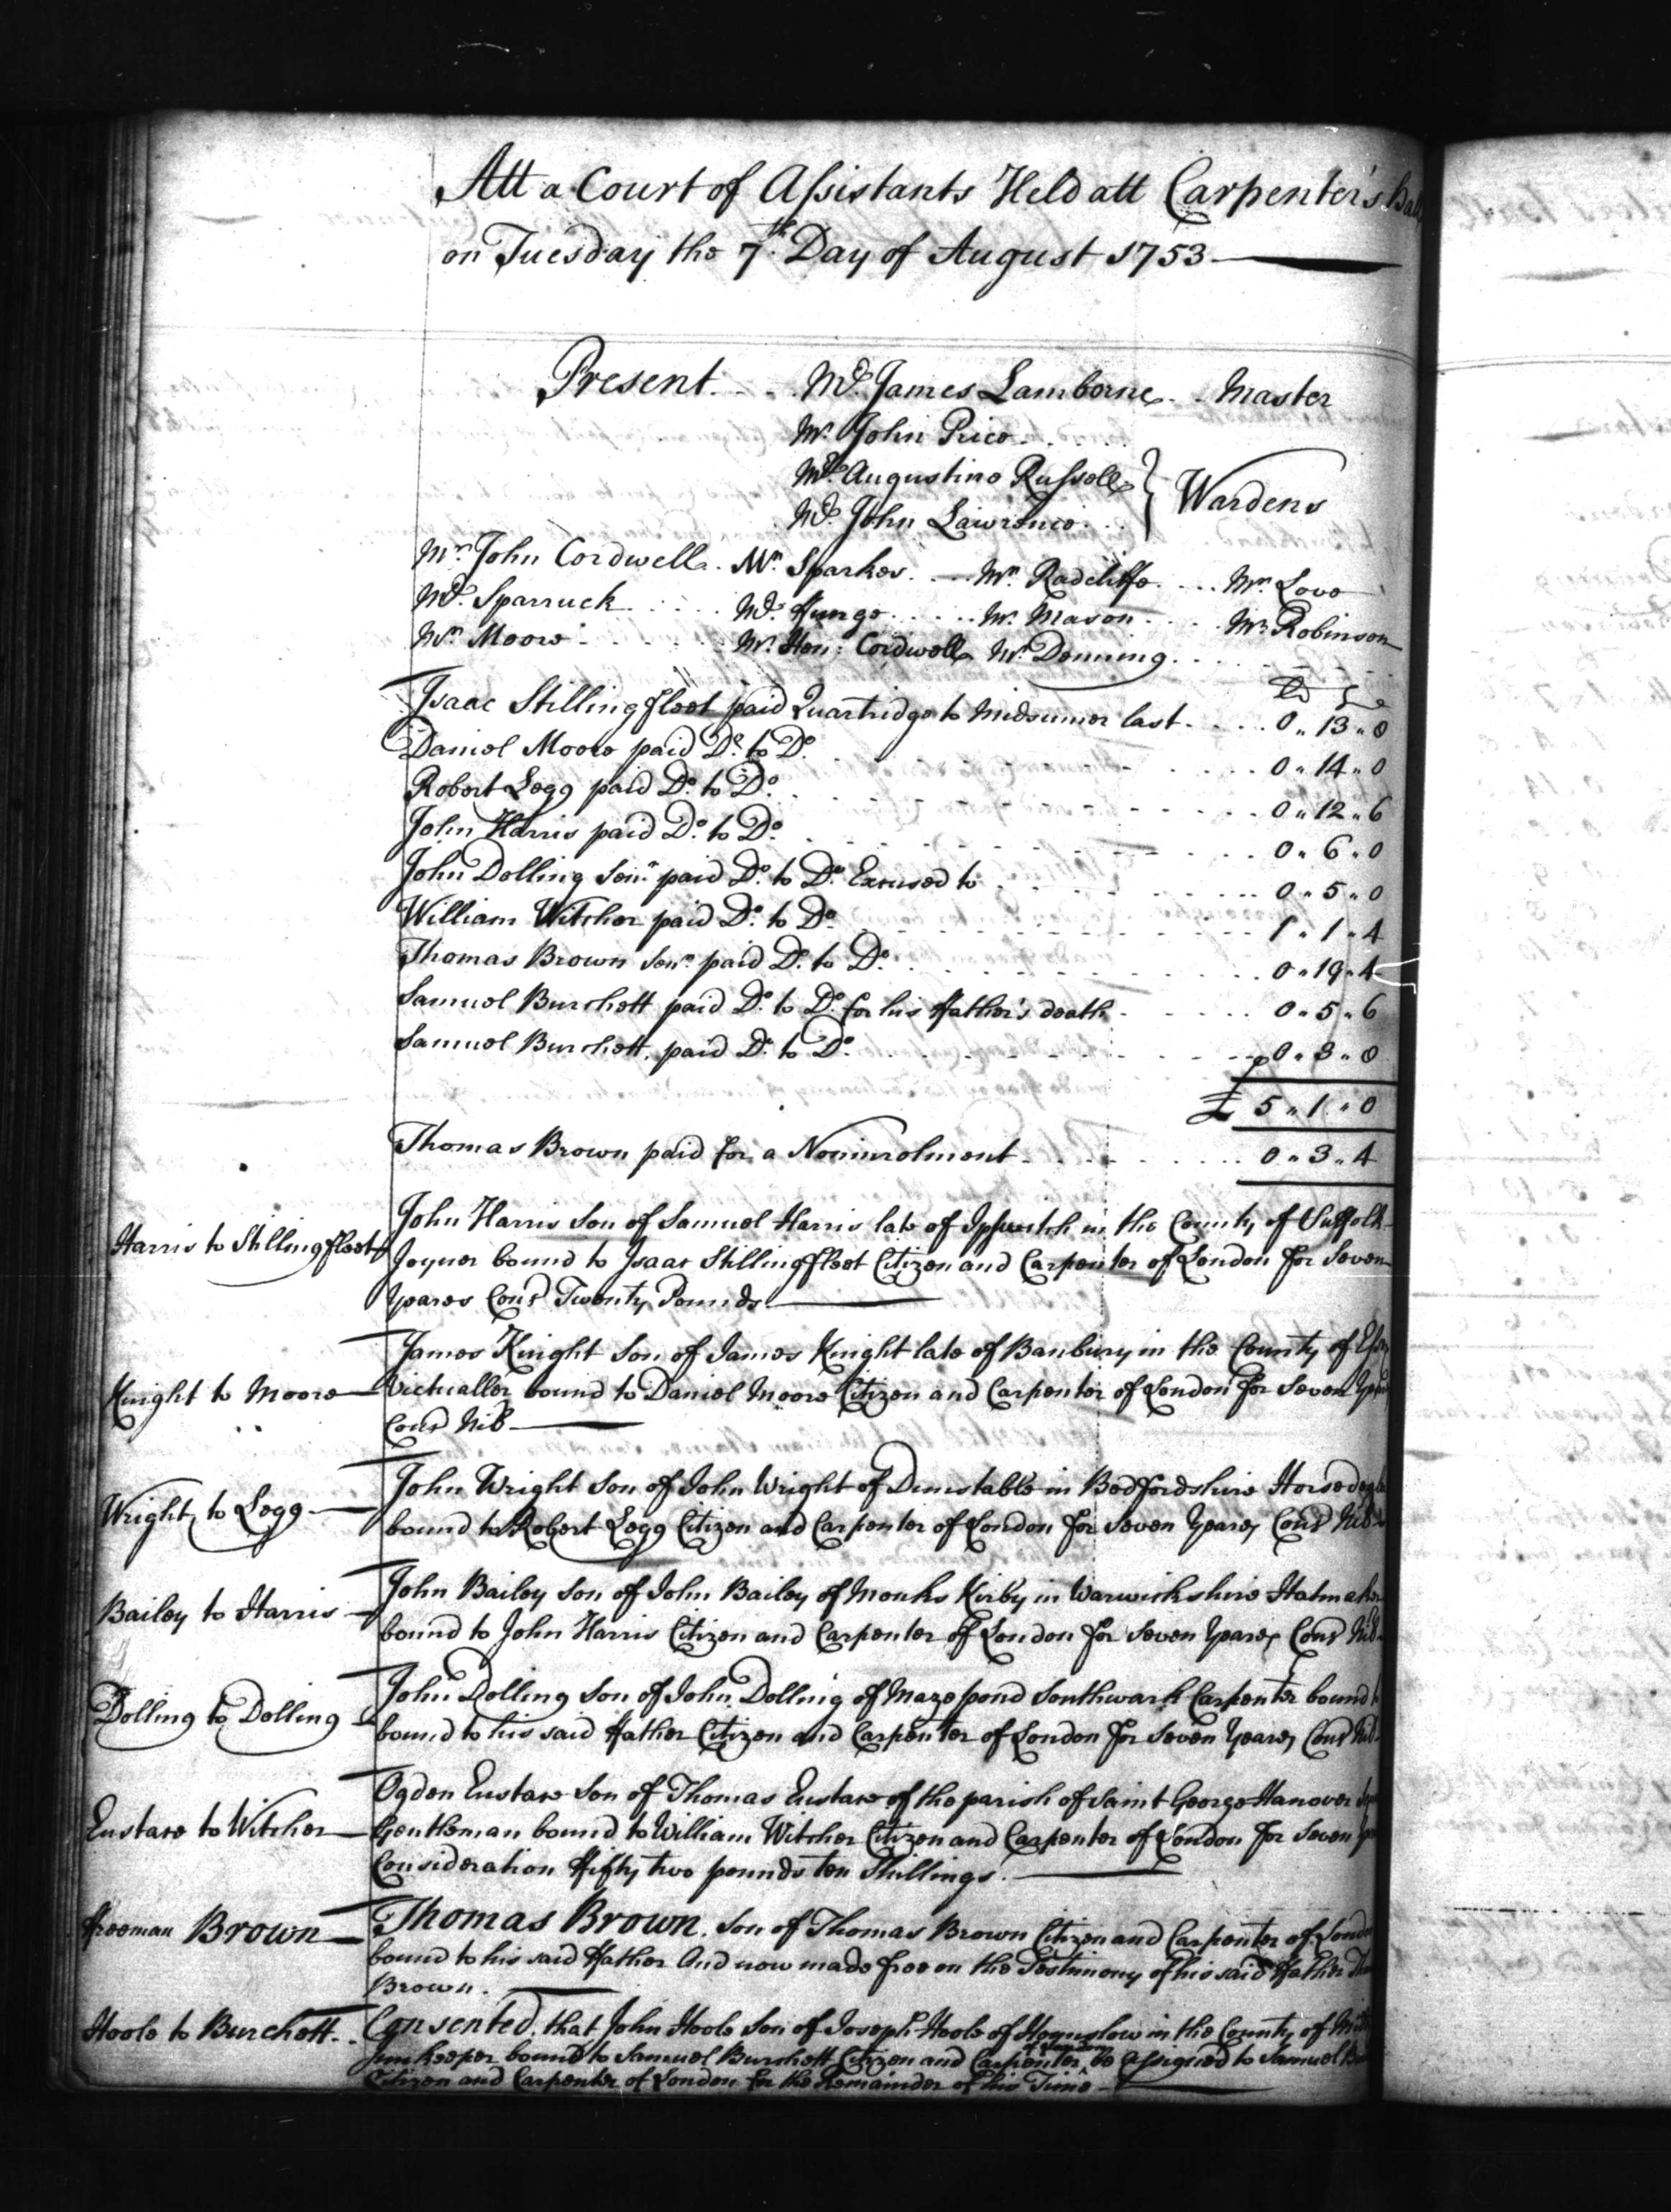 Att a Court of Assistants Held att Carpenter's
on Tuesday the 7th. Day of August 1753
Present. Mr. James Lamborne Master
Mr. John Price
Mr. Augustine Russell
Mr. John Lawrence
Wardens
Mr. John Cordwell Mr. Sparkes Mr. Radcliffe Mr. Love
Mr. Sparruck Mr. Mason Mr. Robinson
Mr. Moore Mr. Hen: Cordwell Mr. Denning
Isaac Stillingfleet paid Quartridge to Midsumer last 0„13„0
Daniel Moore paid Do. to Do. 0„14„0
Robert Legg paid Do. to Do. 0„12„6
John Harris paid Do. to Do. 0„6„0
John Dolling Senr. paid Do. to Do. Excused to 0„5„0
William Witcher paid Do. to Do. 1„1„4
Thomas Brown Senr. paid Do. to Do. 0„19„4
Samuel Burchett paid Do. to Do. for his Father's death 0„5„6
Samuel Burchett paid Do. to Do.
£ 5„1„0
Thomas Brown paid for a Noninrolment 0„3„4
Harris to Stillingfleet
John Harris Son of Samuel Harris late of Ipswitch in the County of Suffolk
Joyner bound to Isaac Stillingfleet Citizen and Carpenter of London for Seven
Yeares Cons Twenty Pounds
Knight to Moore
James Knight Son of James Knight late of Banbury in the County of
Victualler bound to Daniel Moore Citizen and Carpenter of London for Seven
Cons Nil
Wright to Legg
John Wright Son of John Wright of Dunstable in Bedfordshire
bound to Robert Legg Citizen and Carpenter of London for Seven Yeares Cons Nil
Bailey to Harris
John Bailey Son of John Bailey of Monks Kirby in Warwickshire
bound to John Harris Citizen and Carpenter of London for Seven Yeares Cons Nil
Dolling to Dolling
John Dolling Son of John Dolling of Maze pond Southwark Carpenter bound
bound to his said Father Citizen and Carpenter of London for Seven Yeares Cons Nil
Eustace to Witcher
Ogden Eustace Son of Thomas Eustace of the parish of Saint George Hanover
Gentleman bound to William Witcher Citizen and Carpenter of London for Seven
Consideration Fifty two pounds ten Shillings.
Freeman Brown
Thomas Brown Son of Thomas Brown Citizen and Carpenter of
bound to his said Father And now made free on the Testimony of his said Father
Brown.
Hoole to Burchett
Consented, that John Hoole Son of Joseph Hoole of Hounslow in the County of
Innkeeper bound to Samuel Burchett Citizen and Carpenter of London be Assigned to Samuel
Citizen and Carpenter of London for the Remainder of his Time